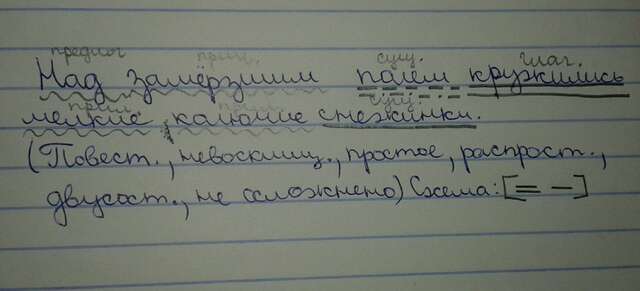 предлог прил. сущ. глаг.
Над замёрзшим полем кружились
прил. прил. сущ.
мелкие, колючие снежинки.
(Повест., невосклиц., простое, распрост.,
двусост., не осложнено) Схема: [= –]